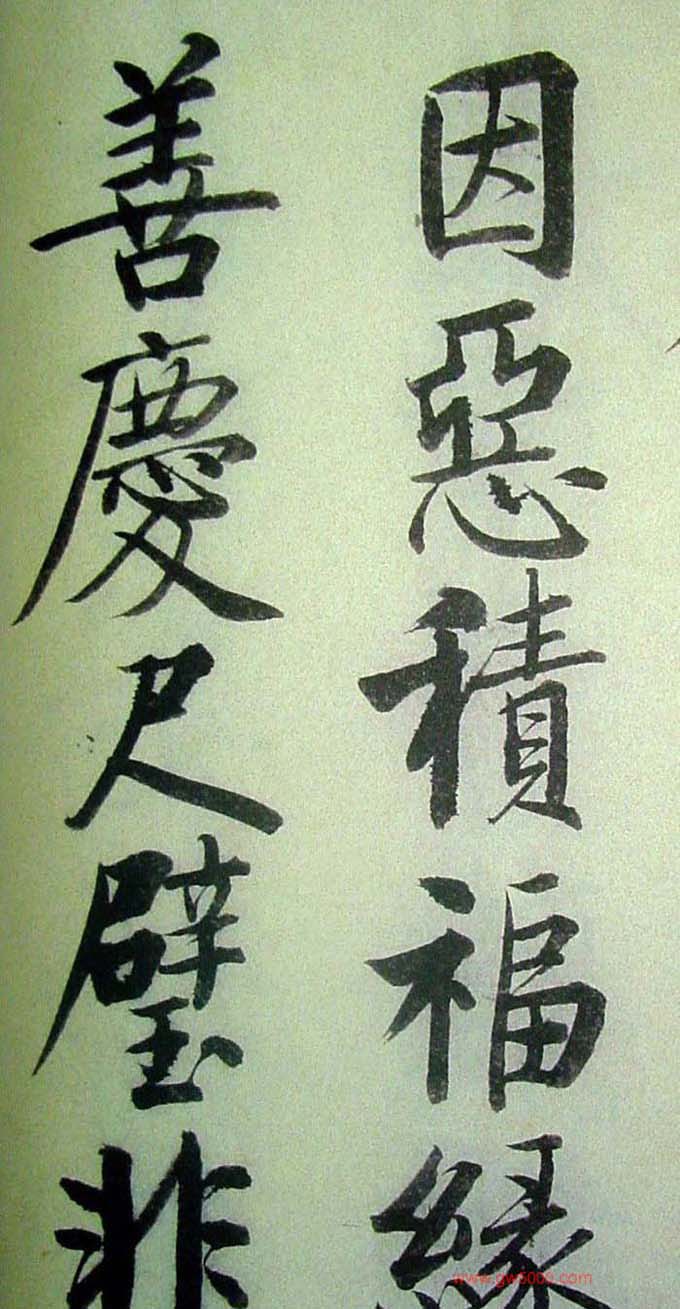 因惡積福緣
善慶尺璧非
www.gw5000.com